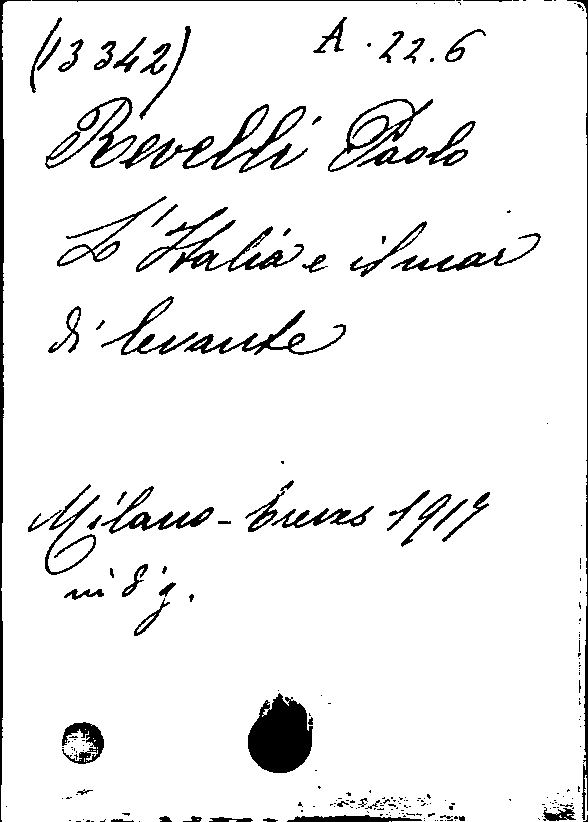 (13342) A. 22. 6
Revelli Paolo
L'Italia e il mar
di levante
Milano - Treves 1917
in 8 g.